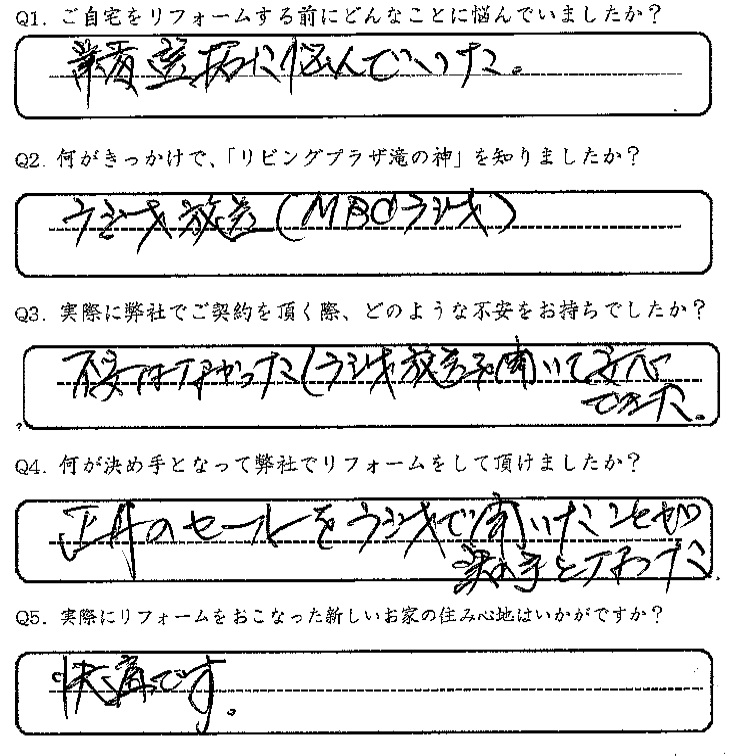 Q1. ご自宅をリフォームする前にどんなことに悩んでいましたか？
業者選択に悩んでいた。
Q2. 何がきっかけで、「リビングプラザ滝の神」を知りましたか？
ラジオ放送(MBCラジオ)
Q3. 実際に弊社でご契約を頂く際、どのような不安をお持ちでしたか？
不安はなかった(ラジオ放送を聞いて安心
できた。
Q4. 何が決め手となって弊社でリフォームをして頂けましたか？
正月のセールをラジオで聞いたことが
決め手となった
Q5. 実際にリフォームをおこなった新しいお家の住み心地はいかがですか？
快適です。